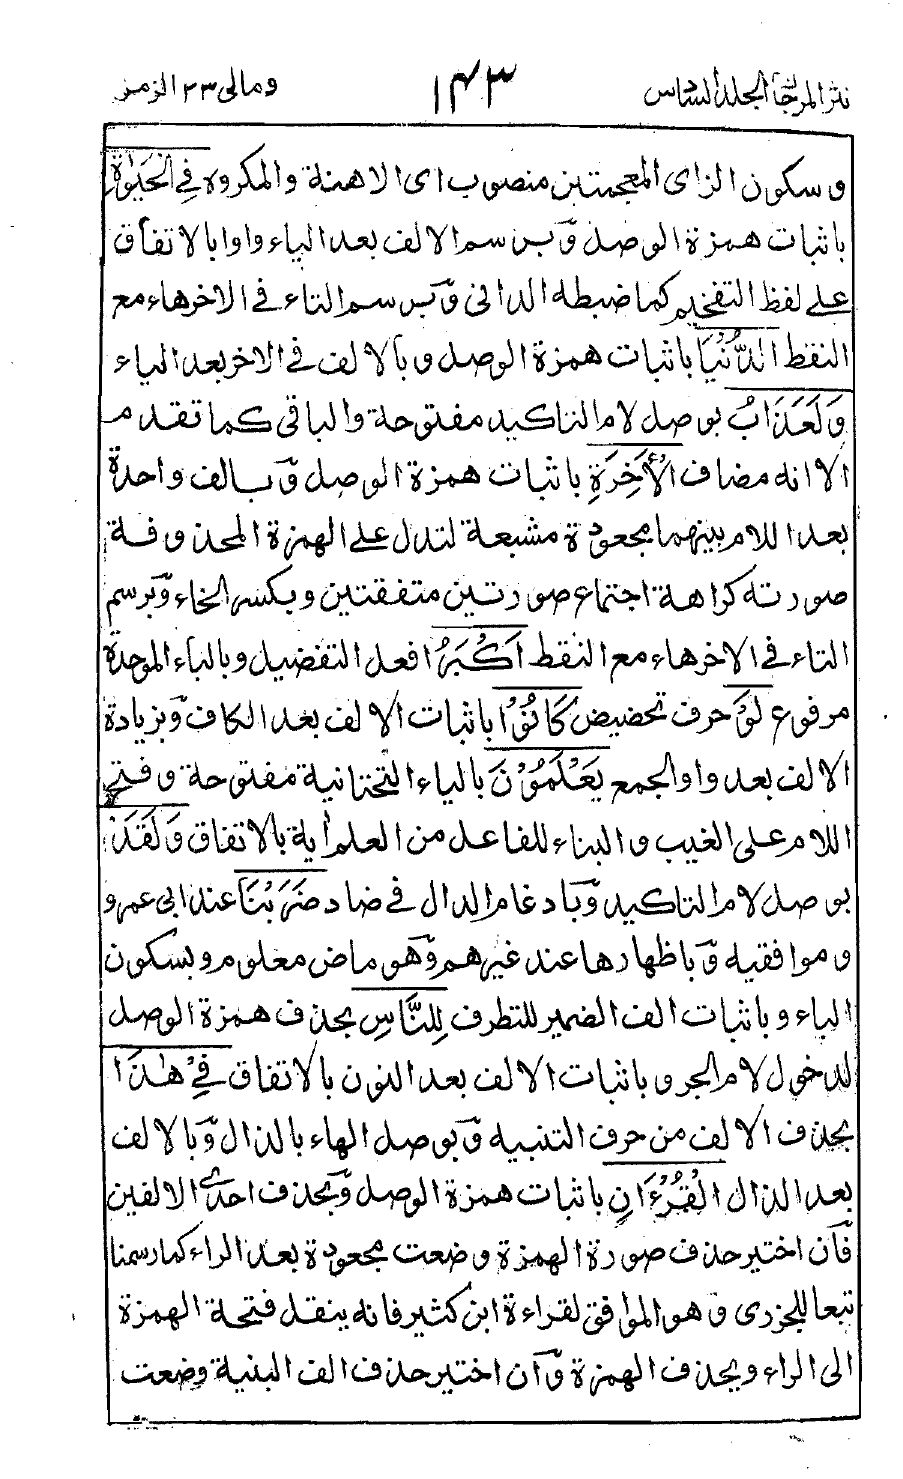 نثر المرجان الجلد السادس
١٤٣
ومالى ٢٣ الزمر
وسكون الزاى المعجمتين منصوب اى الاهنة والمكروه فِي الْحَيٰوةِ
باثبات همزة الوصل وّبرسم الالف بعد الياء واوا بالاتفاق
على لفظ التفخيم كما ضبطه الدانى وّبرسم التاء فى الاخر هاء مع
النقط الدُّنْيَا باثبات همزة الوصل وبالالف فى الاخر بعد الياء
وَلَعَذَابُ بوصل لام التاكيد مفتوحة والباقى كما تقدم
الا انه مضاف الْأٰخِرَةِ باثبات همزة الوصل وّبالف واحدة
بعد اللام بينهما مجعودة مشبعة لتدل على الهمزة المحذوفة
صورته كراهة اجتماع صورتين متفقتين وبكسر الخاء وّبرسم
التاء فى الاخر هاء مع النقط اَكْبَرُ افعل التفضيل وبالباء الموحدة
مرفوع لَوْ حرف تحضيض كَانُوْا باثبات الالف بعد الكاف وّبزيادة
الالف بعد واو الجمع يَعْلَمُوْنَ بالياء التحتانية مفتوحة وفتح
اللام على الغيب والبناء للفاعل من العلم اٰية بالاتفاق وَلَقَدْ
بوصل لام التاكيد وّبادغام الدال فى ضاد ضَرَبْنَا عند ابى عمرو
وموافقيه وّباظهارها عند غيرهم وّهو ماض معلوم وبسكون
الباء وباثبات الف الضمير للتطرف لِلنَّاسِ بحذف همزة الوصل
لدخول لام الجر وباثبات الالف بعد النون بالاتفاق فِيْ هٰذَا
بحذف الالف من حرف التنبيه وّبوصل الهاء بالذال وّبالالف
بعد الذال الْقُرْءَانِ باثبات همزة الوصل وّبحذف احدى الالفين
فاّن اختير حذف صورة الهمزة وضعت مجعودة بعد الراء كما رسمنا
تبعا للجزرى وهو الموافق لقراءة ابن كثير فانه ينقل فتحة الهمزة
الى الراء ويحذف الهمزة وّان اختير حذف الف البنية وضعت